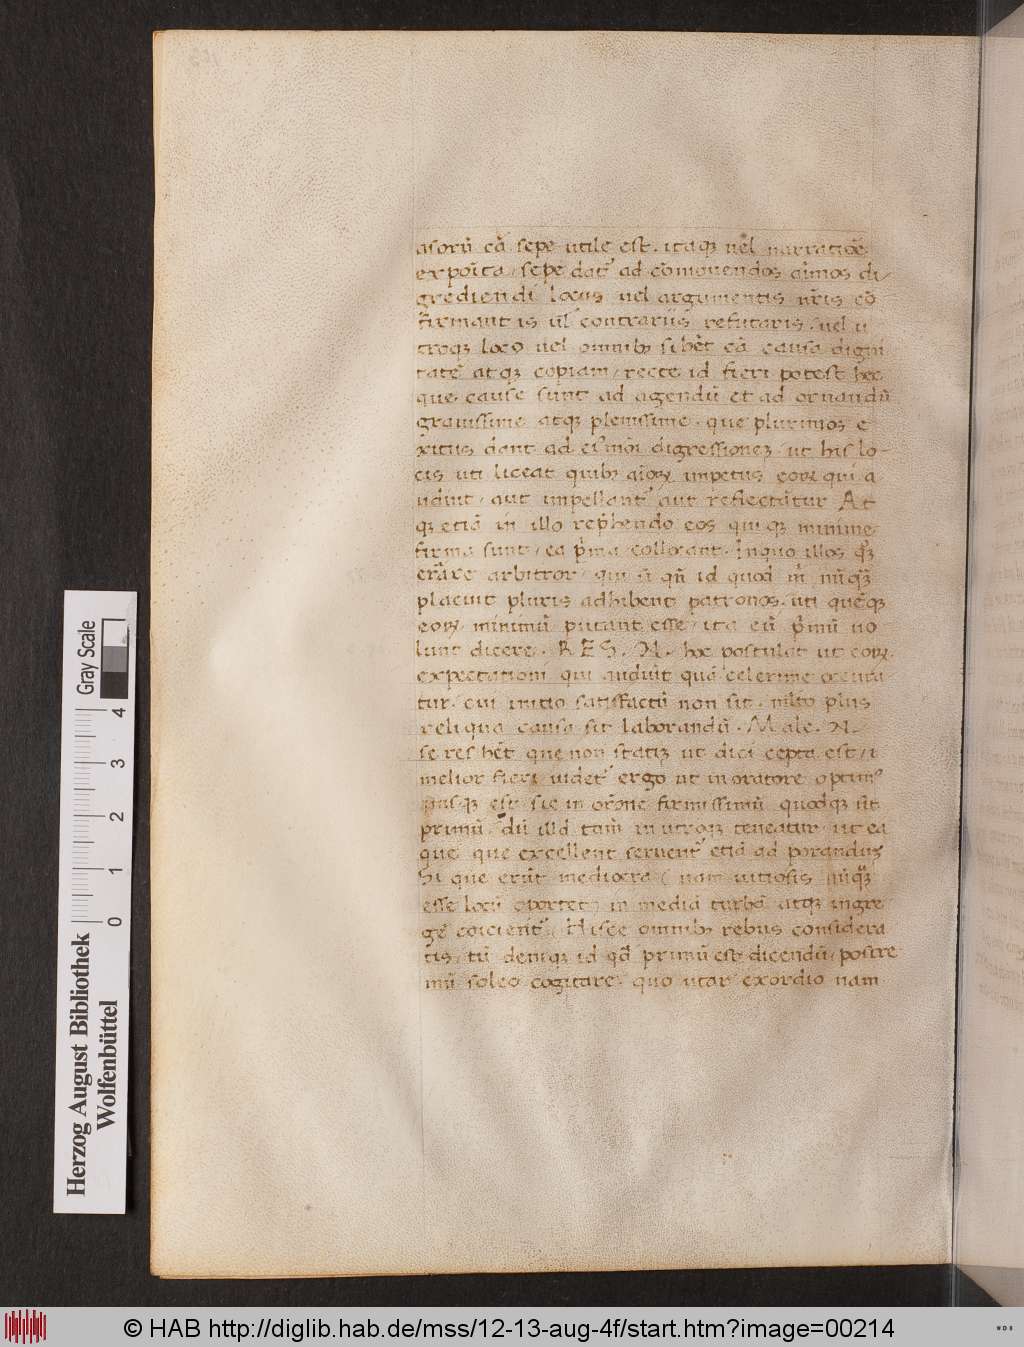 asorū cā sepe utile est. itaqꝫ uel narratiōe
expoſita / sepe dat᷑ ad cōmouendos aĩmos di/
grediendi locus uel argumentis nr̄is cō
firmantis ūl contrariis refutatis / uel u
troqꝫ loco uel omnibꝫ si hēt cā causa digni
tatē atqꝫ copiam / recte id fieri potest hec
que cause sunt ad agendū et ad ornandū
grauissime atqꝫ plenissime. que plurimos e
xitus dant ad eiꝰmōi digressionez / ut his lo-
cis uti liceat quibꝫ aĩorꝝ impetus eorꝝ qui a
udiut / aut impellant᷑ aut reflectātur At
qꝫ etiā in illo rep̄hendo eos qui qꝫ minime
firma sunt / ea p̄ma collocant. Inquo illos qꝫ
errare arbitror / qui si qn̄ id quod m̄ nūqꝫ
placuit pluris adhibent patronos / uti quēqꝫ
eorꝝ minimū putant esse / ita eū p̄mū uo
lunt dicere. RES. N. hoc postulat ut eorꝝ
expectationi qui audiūt quā celerime occura
tur / cui initio satisfactū non sit. mlto plus
reliqua causa sit laborandū. Male. N.
se res hēt que non statiꝫ ut dici cepta est / i
melior fieri uidet᷑ ergo ut in oratore optimꝰ
quisqꝫ est sic in orōne firmissimū quodqꝫ sit
primū / dū illd tam̄ in utroqꝫ teneatur / ut ea
que que excellent seruent᷑ etiā ad porandū
Si que erūt mediocra ( nam uitiosis nūqꝫ
esse locū oportet) in mediā turbā atqꝫ in gre
gē coicient᷑. Hisce omnibꝫ rebus considera
tis / tū deniqꝫ id qd̄ primū est dicendū / postre
mū soleo cogitare. quo utar exordio nam
Gray Scale
4
3
2
1
0
Herzog August Bibliothek
Wolfenbüttel
© HAB http://diglib.hab.de/mss/12-13-aug-4f/start.htm?image=00214